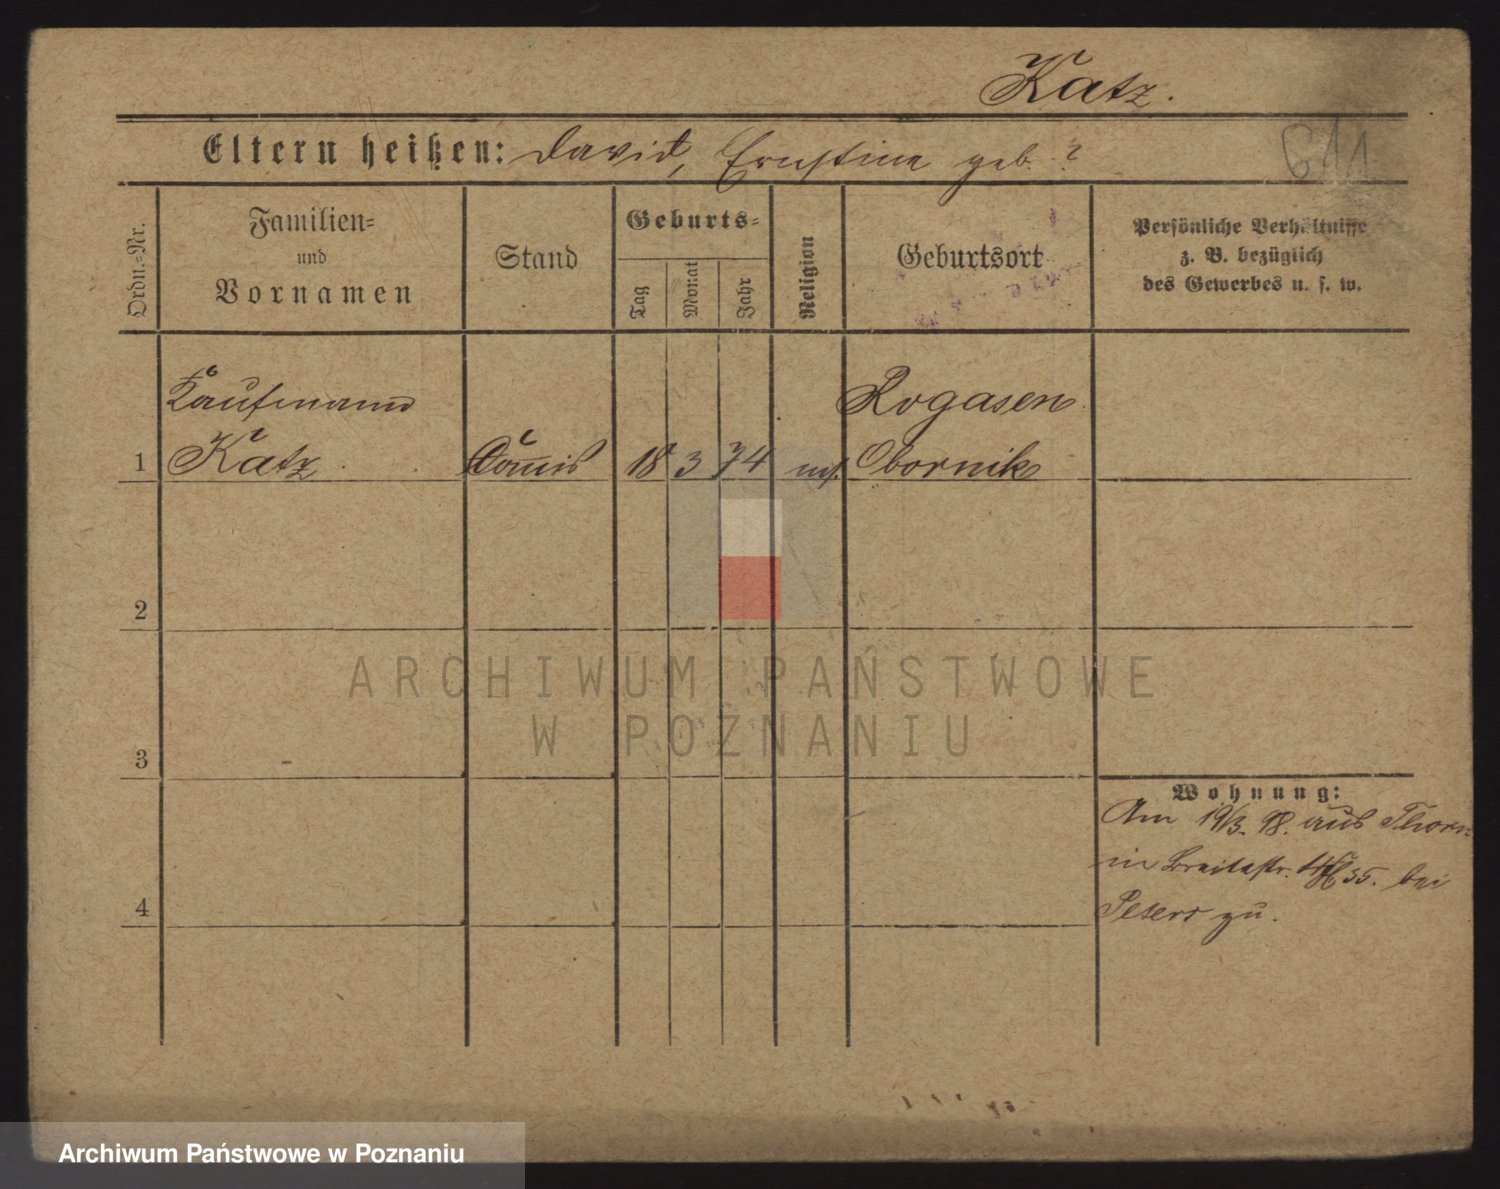 Katz.
Eltern heißen: David, Ernstine geb. ?
611
Ordn.-Nr.
Familien-
und
Vornamen
Stand
Geburts-
Tag
Monat
Jahr
Religion
Geburtsort
Persönliche Verhältnisse
z. B. bezüglich
des Gewerbes u. s. w.
Kaufmann
Rogasen
1 Katz Comis 18 3 74 mos. Obornik
2
ARCHIWUM PAŃSTWOWE
W POZNANIU
3
Wohnung:
Am 19/3. 98. aus Thorn
in Breitestr. 35. bei
4
Peters zu.
Archiwum Państwowe w Poznaniu